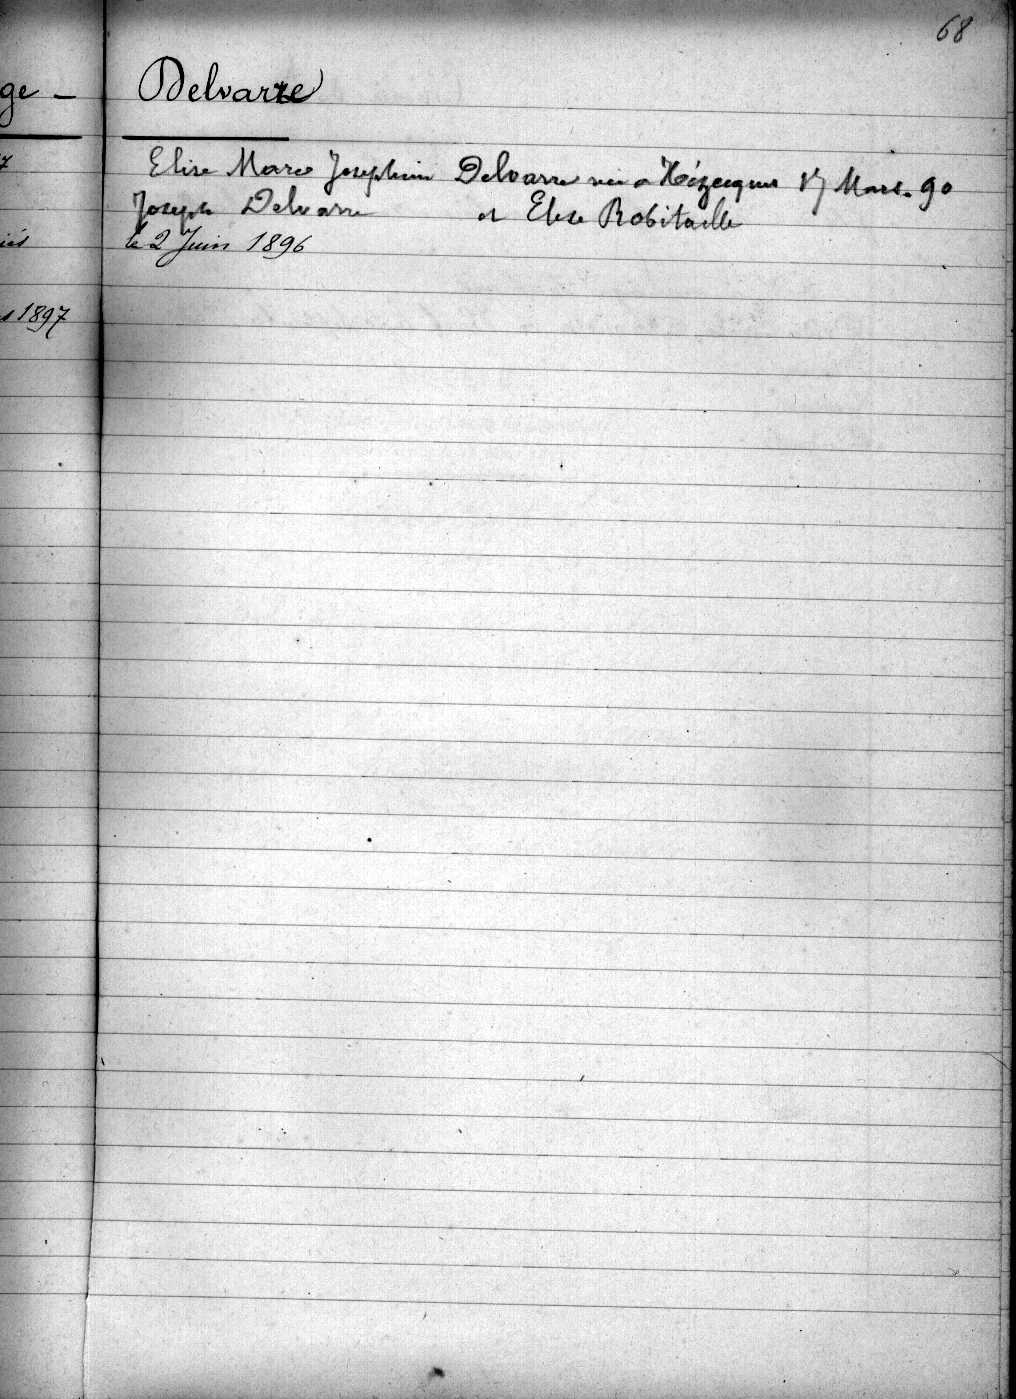 68
ge -
Delvarre
7
Elise Marie Josephine Delvarre née a Hézecques 17 Mars 90
Joseph Delvarre et Elise Robitaille
iés
le 2 Juin 1896
s 1897